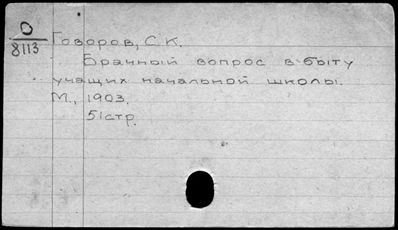 О
8113
Говоров, С.К.
Брачный вопрос в быту
учащих начальной школы.
М., 1903.
51 стр.